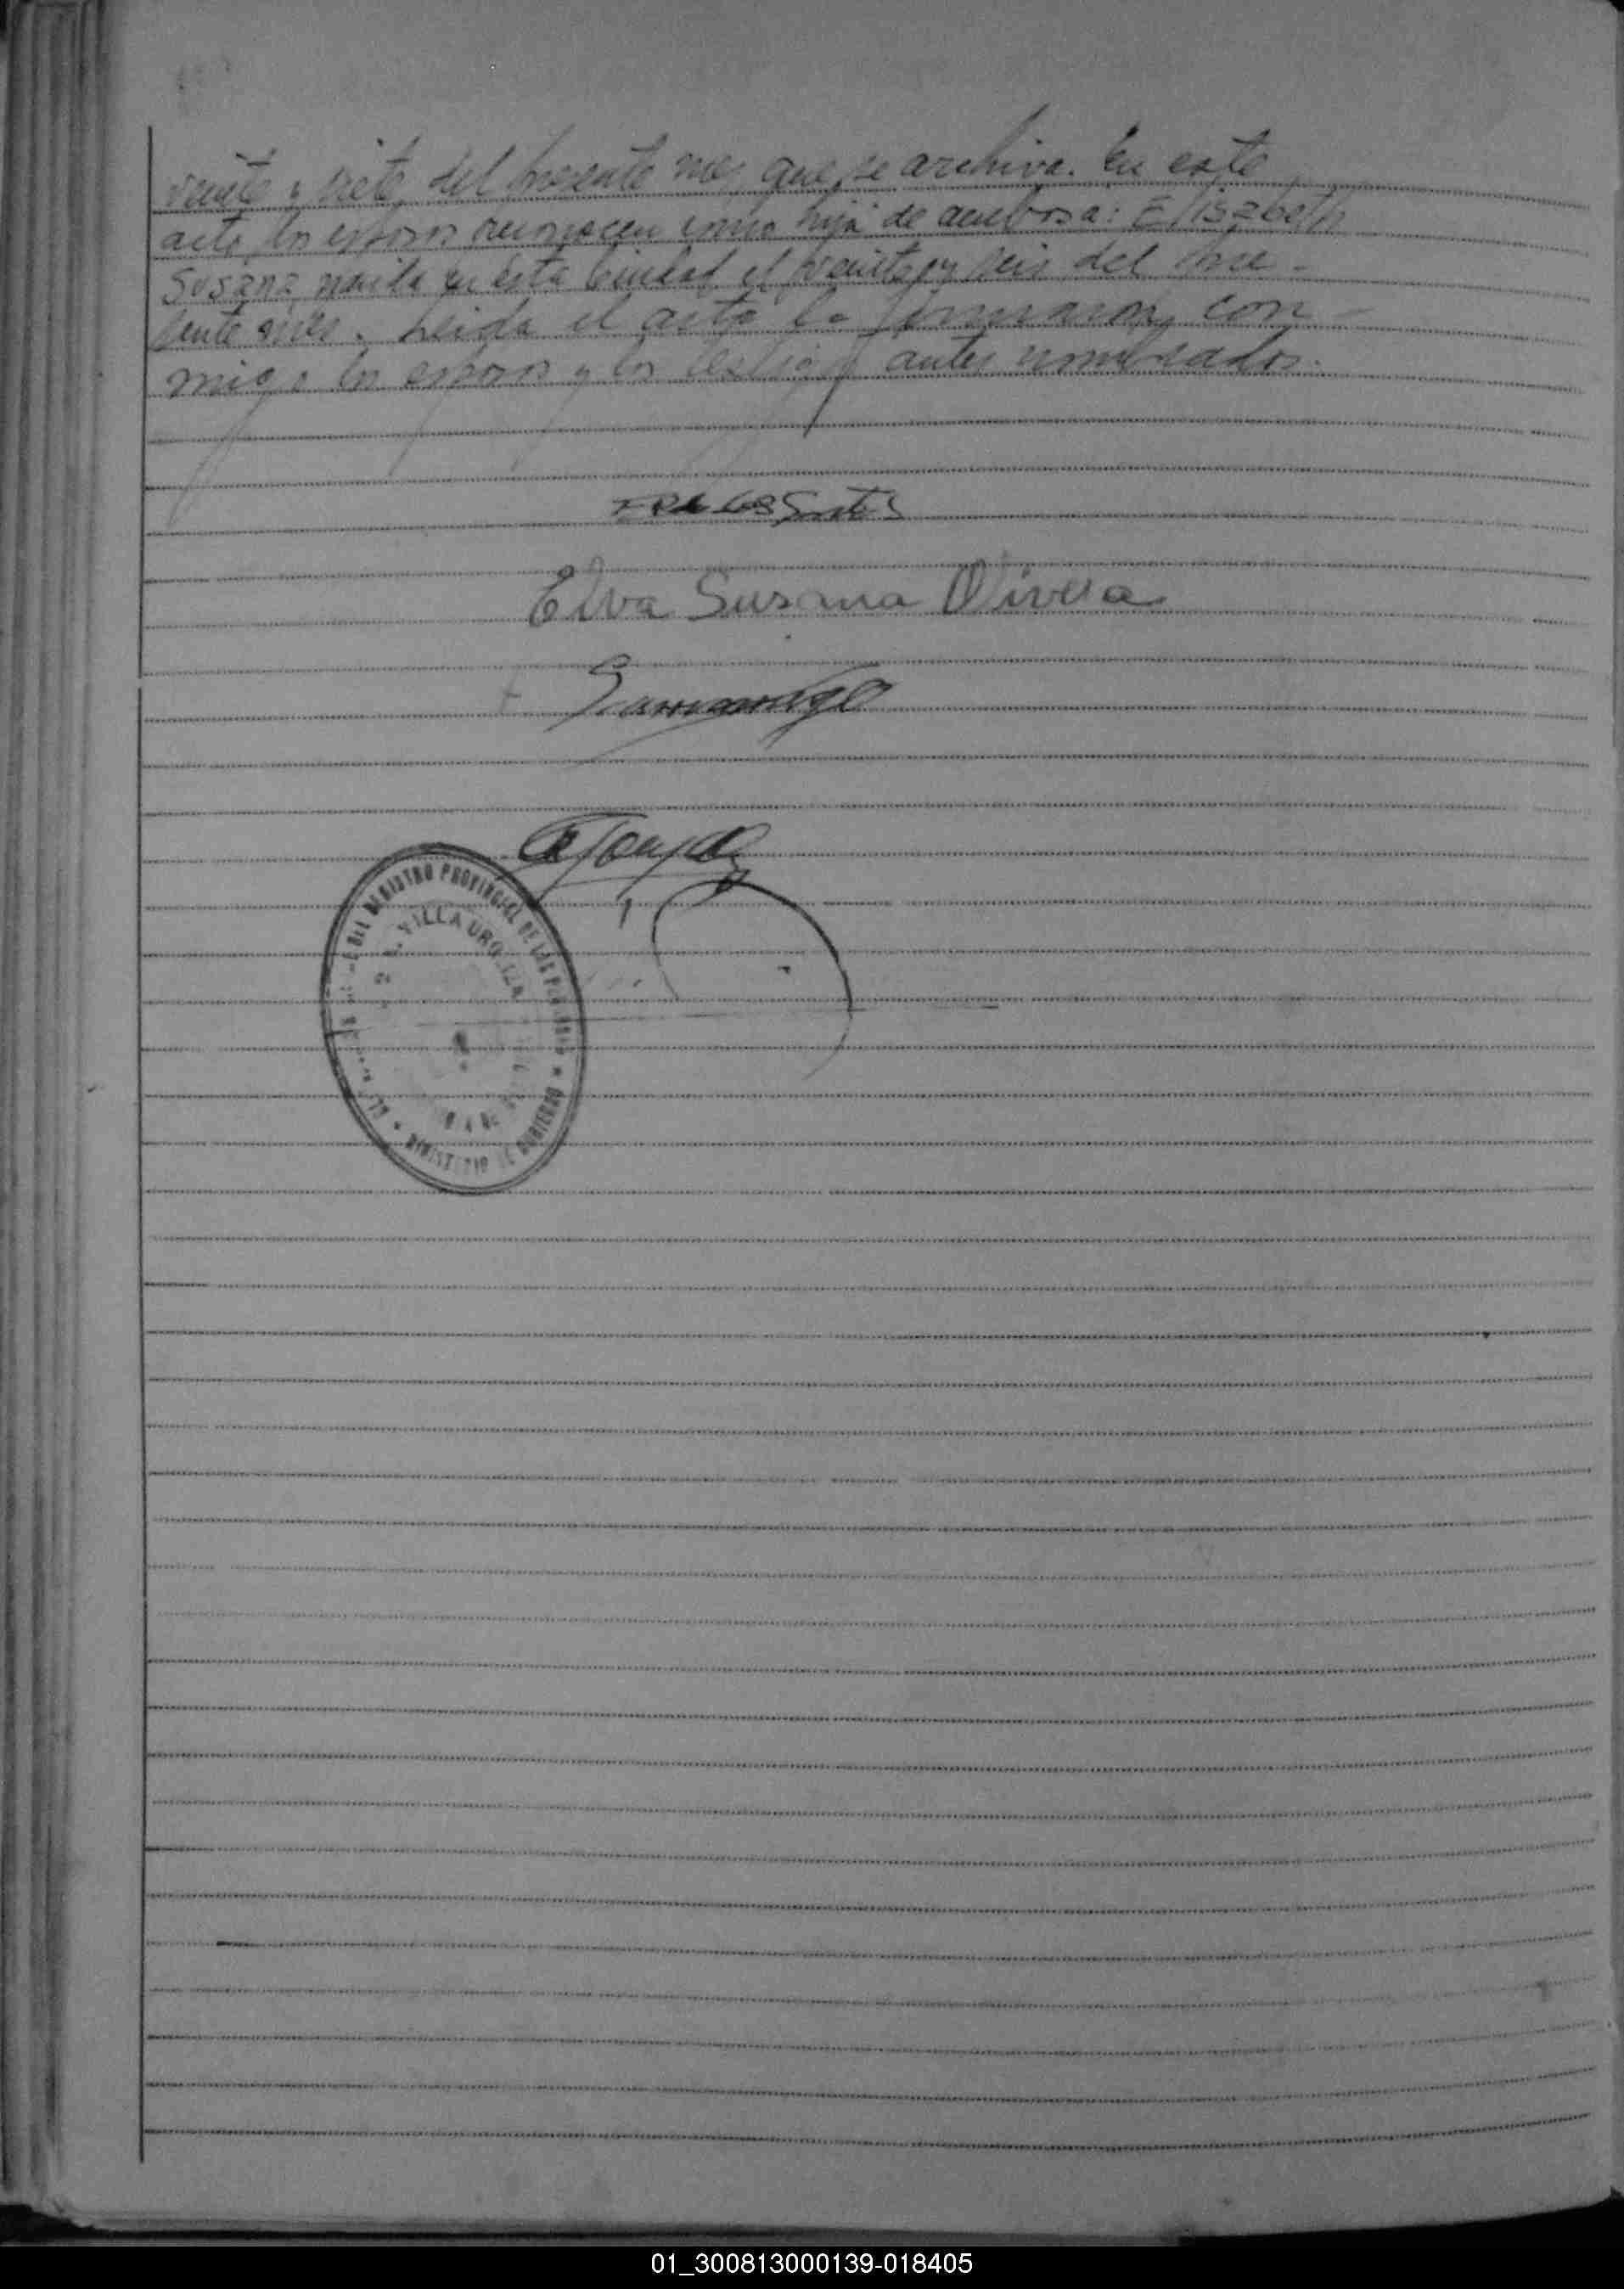 veinte y siete del presente mes que se archiva. En este
acto los esposos reconocen como hija de ambos a: Elisabeth
Susana nacida en esta Ciudad el veinte y seis del pre-
sente mes. Leida el acta la firmaron, con-
migo los esposos y los testigos antes nombrados.
Elva Susana Olivera
REGISTRO PROVINCIAL DE LAS PERSONAS
VILLA URQUIZA
MINISTERIO DE GOBIERNO
01_300813000139-018405